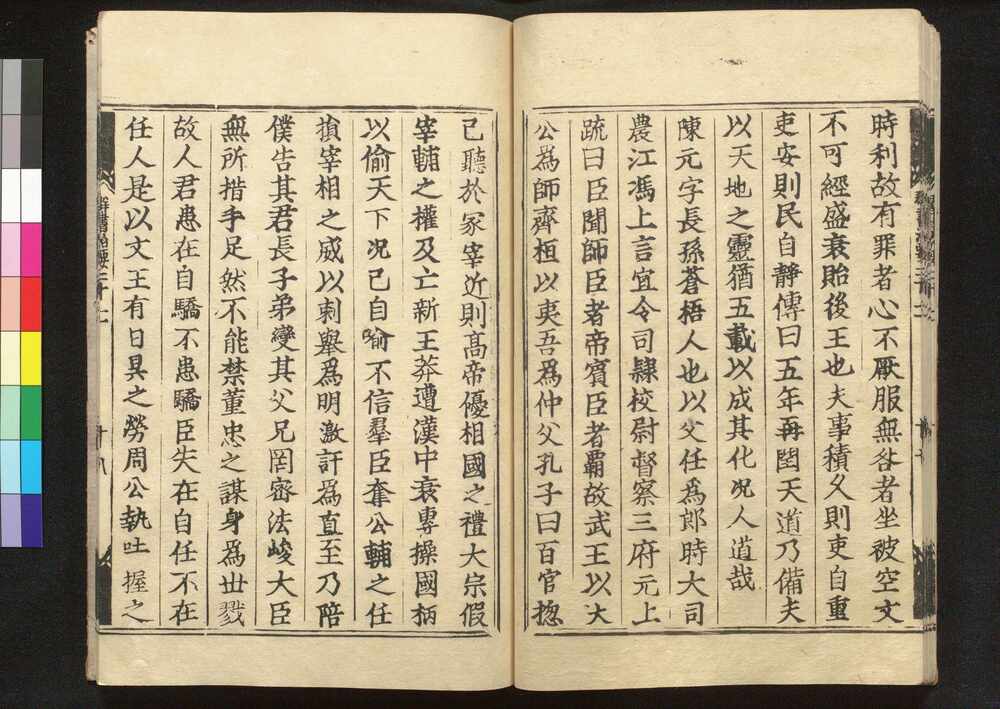 時利故有罪者心不厭服無咎者坐被空文
不可經盛衰貽後王也夫事積久則吏自重
吏安則民自靜傳曰五年再閏天道乃備夫
以天地之靈猶五載以成其化况人道哉
陳元字長孫蒼梧人也以父任爲郎時大司
農江馮上言宜令司隷校尉督察三府元上
疏曰臣聞師臣者帝賓臣者霸故武王以太
公爲師齊桓以夷吾爲仲父孔子曰百官揔
己聽於冢宰近則髙帝優相國之禮大宗假
宰輔之權及亡新王莽遭漢中衰專操國柄
以偷天下况己自喻不信羣臣奪公輔之任
損宰相之威以刺舉爲明激訐爲直至乃陪
僕告其君長子弟變其父兄罔宻法峻大臣
無所措手足然不能禁董忠之謀身爲丗戮
故人君患在自驕不患驕臣失在自任不在
任人是以文王有日昃之勞周公執吐握之